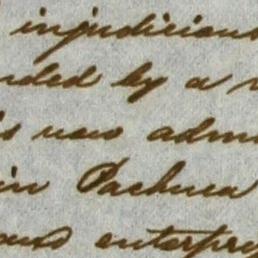 injudicious
nded by a
is now adm
in Pachuca
ous enterpr